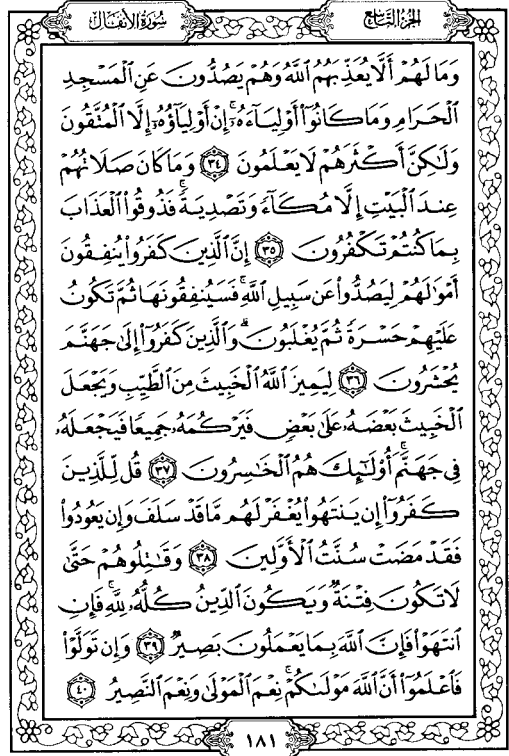 سُورَةُ الأَنفَالِ
الجُزْءُ التَّاسِعُ
وَمَا لَهُمْ أَلَّا يُعَذِّبَهُمُ ٱللَّهُ وَهُمْ يَصُدُّونَ عَنِ ٱلْمَسْجِدِ
ٱلْحَرَامِ وَمَا كَانُوٓا۟ أَوْلِيَآءَهُۥٓ ۚ إِنْ أَوْلِيَآؤُهُۥٓ إِلَّا ٱلْمُتَّقُونَ
وَلَٰكِنَّ أَكْثَرَهُمْ لَا يَعْلَمُونَ ٣٤ وَمَا كَانَ صَلَاتُهُمْ
عِندَ ٱلْبَيْتِ إِلَّا مُكَآءً وَتَصْدِيَةً ۚ فَذُوقُوا۟ ٱلْعَذَابَ
بِمَا كُنتُمْ تَكْفُرُونَ ٣٥ إِنَّ ٱلَّذِينَ كَفَرُوا۟ يُنفِقُونَ
أَمْوَٰلَهُمْ لِيَصُدُّوا۟ عَن سَبِيلِ ٱللَّهِ ۚ فَسَيُنفِقُونَهَا ثُمَّ تَكُونُ
عَلَيْهِمْ حَسْرَةً ثُمَّ يُغْلَبُونَ ۗ وَٱلَّذِينَ كَفَرُوٓا۟ إِلَىٰ جَهَنَّمَ
يُحْشَرُونَ ٣٦ لِيَمِيزَ ٱللَّهُ ٱلْخَبِيثَ مِنَ ٱلطَّيِّبِ وَيَجْعَلَ
ٱلْخَبِيثَ بَعْضَهُۥ عَلَىٰ بَعْضٍ فَيَرْكُمَهُۥ جَمِيعًا فَيَجْعَلَهُۥ
فِى جَهَنَّمَ ۚ أُو۟لَٰٓئِكَ هُمُ ٱلْخَٰسِرُونَ ٣٧ قُل لِّلَّذِينَ
كَفَرُوٓا۟ إِن يَنتَهُوا۟ يُغْفَرْ لَهُم مَّا قَدْ سَلَفَ وَإِن يَعُودُوا۟
فَقَدْ مَضَتْ سُنَّتُ ٱلْأَوَّلِينَ ٣٨ وَقَٰتِلُوهُمْ حَتَّىٰ
لَا تَكُونَ فِتْنَةٌ وَيَكُونَ ٱلدِّينُ كُلُّهُۥ لِلَّهِ ۚ فَإِنِ
ٱنتَهَوْا۟ فَإِنَّ ٱللَّهَ بِمَا يَعْمَلُونَ بَصِيرٌ ٣٩ وَإِن تَوَلَّوْا۟
فَٱعْلَمُوٓا۟ أَنَّ ٱللَّهَ مَوْلَىٰكُمْ ۚ نِعْمَ ٱلْمَوْلَىٰ وَنِعْمَ ٱلنَّصِيرُ ٤٠
١٨١